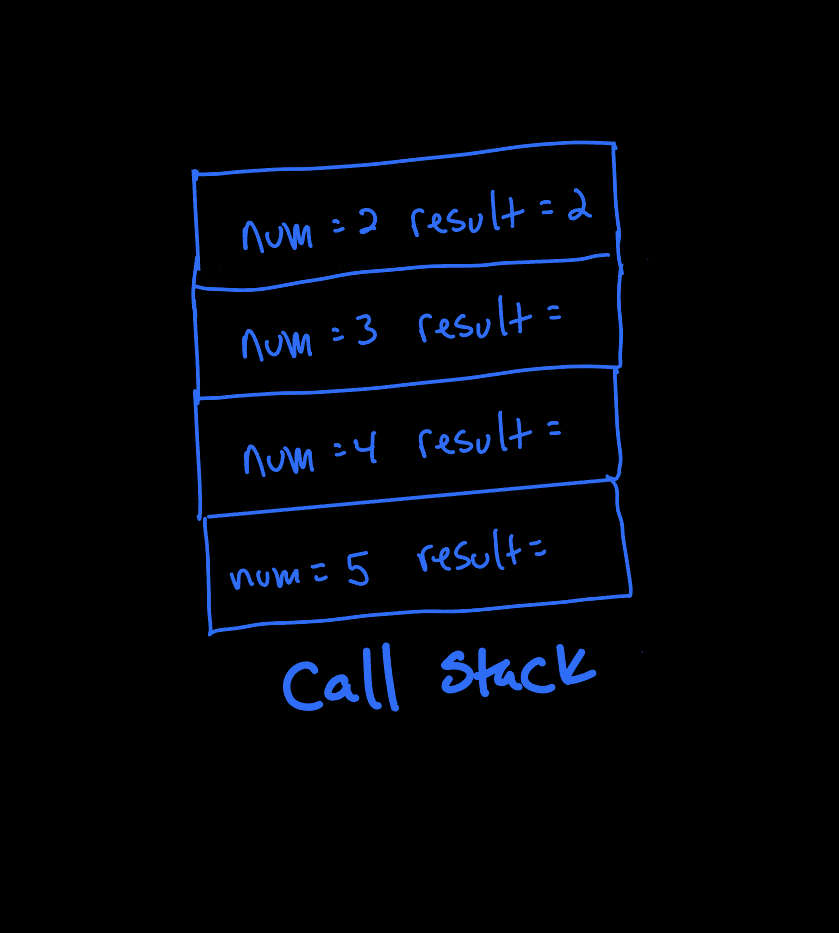 num = 2 result = 2
num = 3 result =
num = 4 result =
num = 5 result =
Call Stack